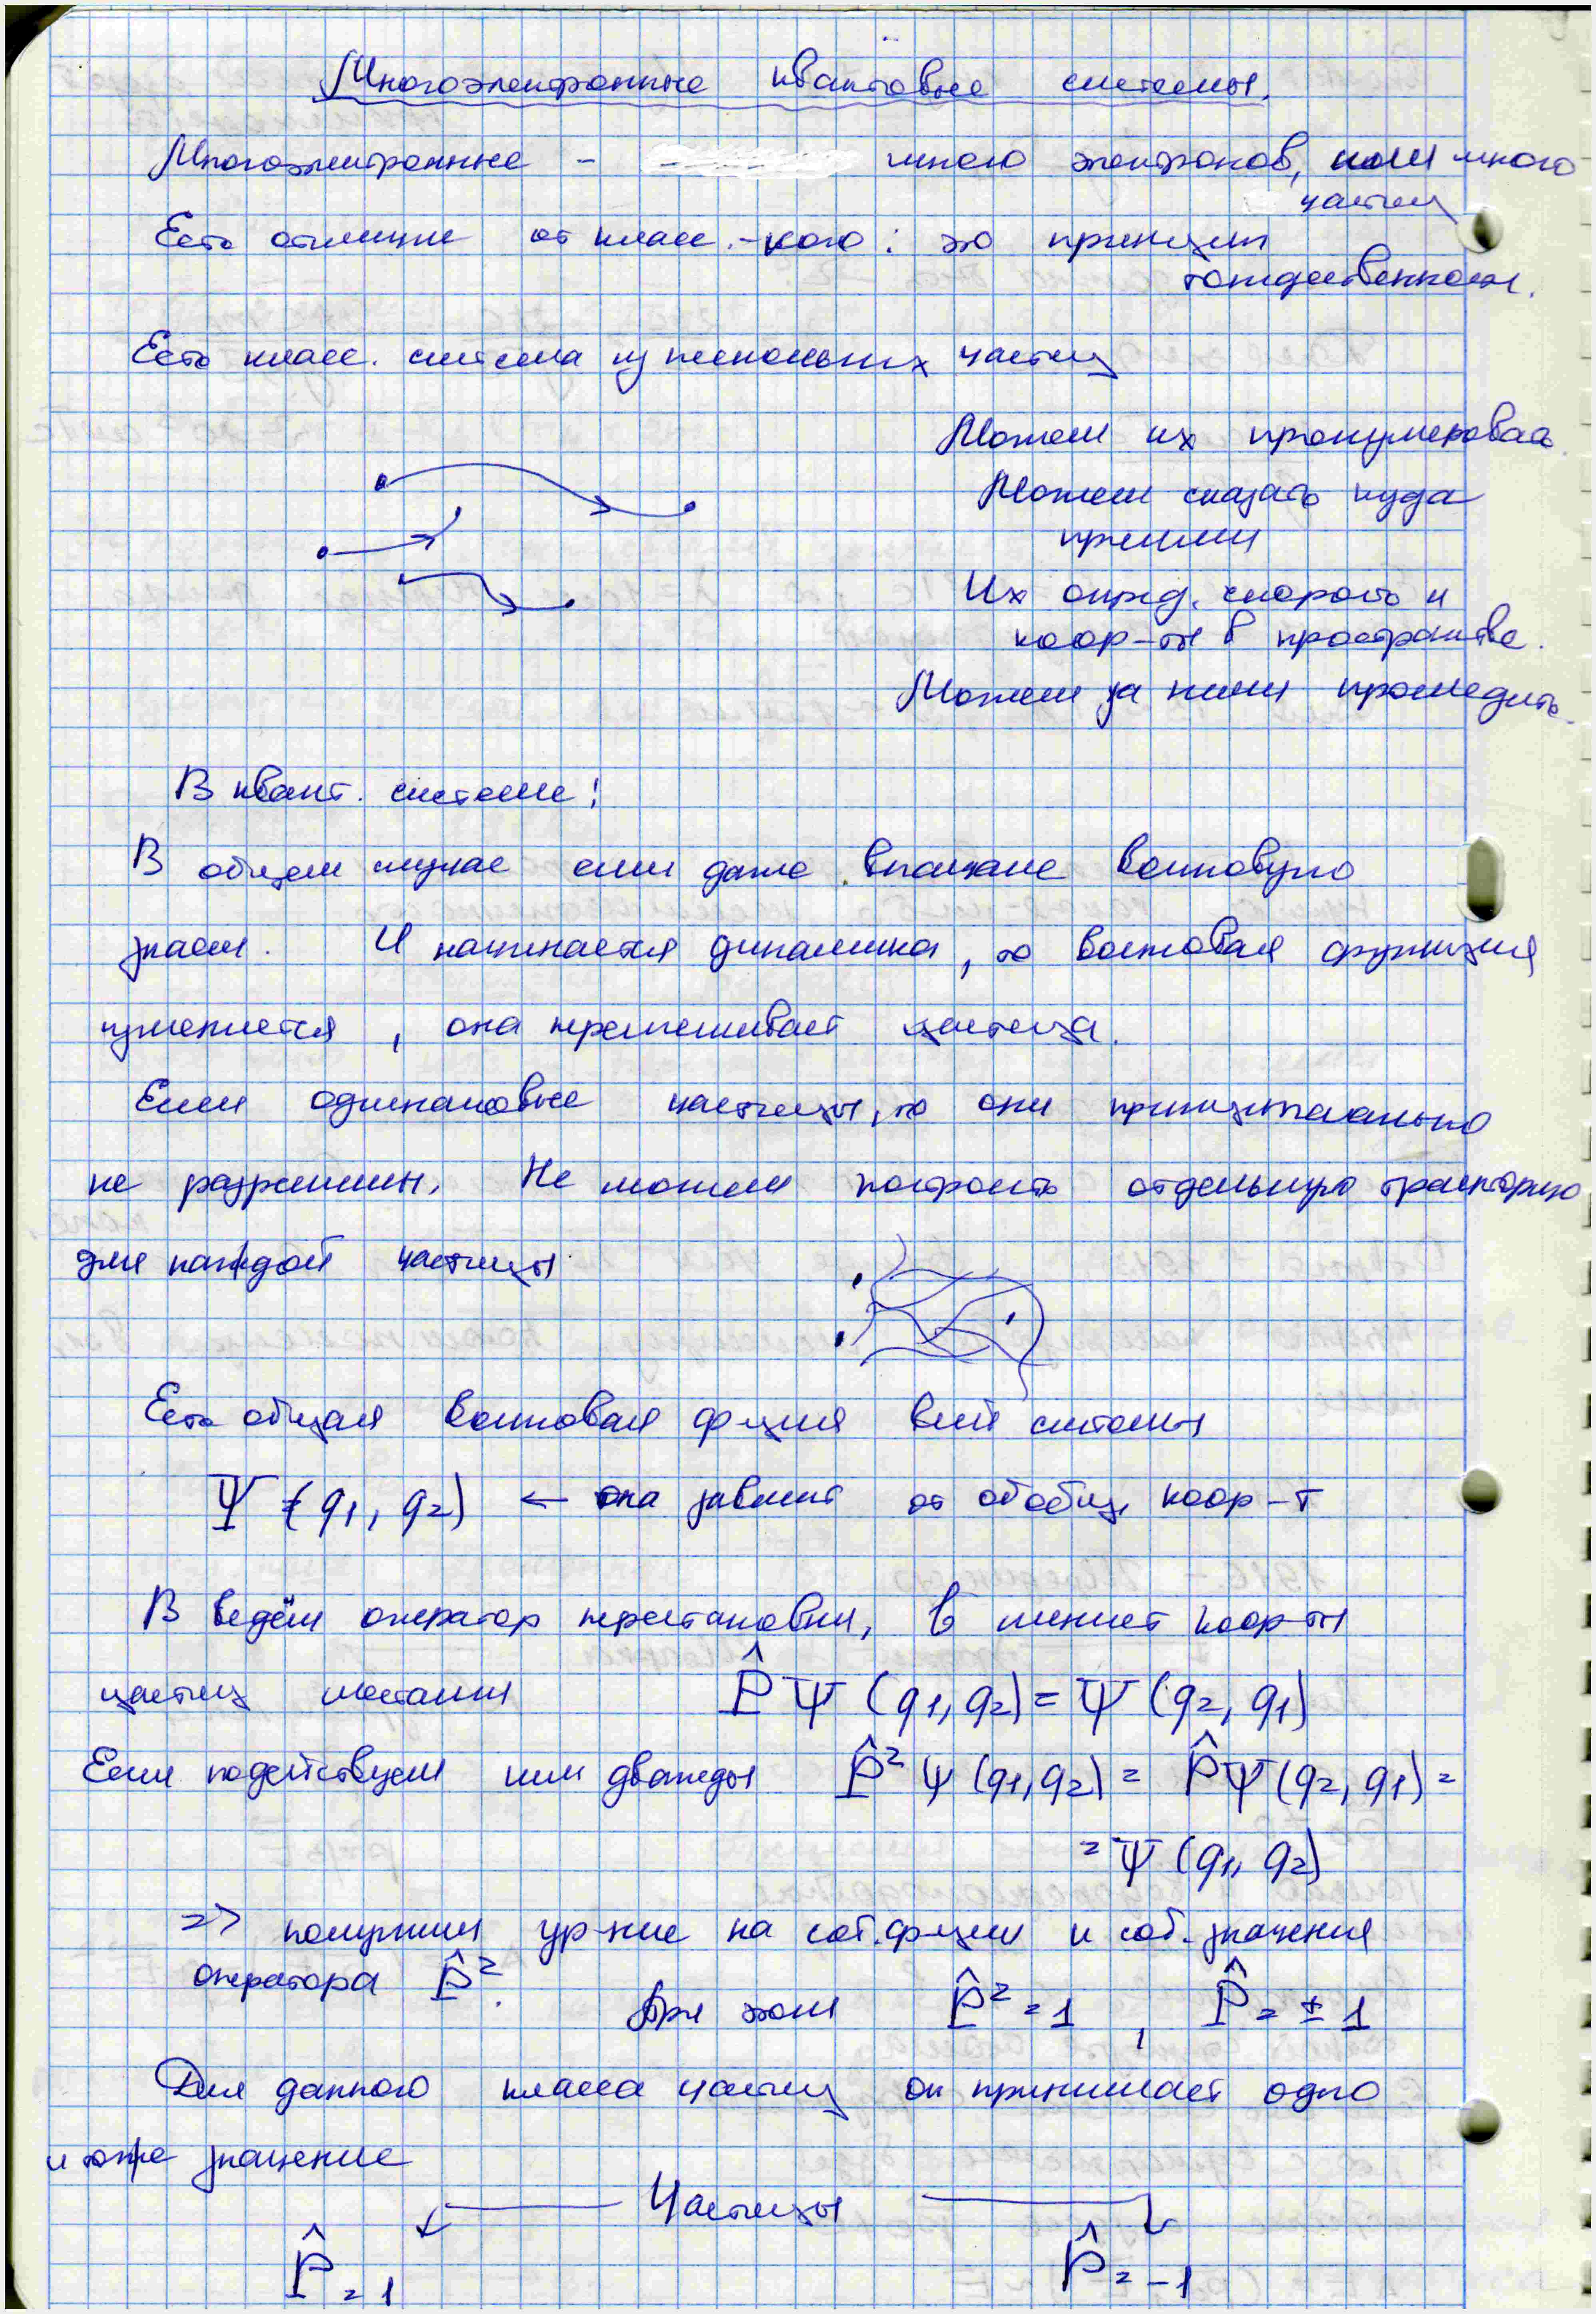 Многоэлектронные квантовые системы.
Многоэлектронные - много электронов, или много
частиц
Есть отличие от класс.-кого: это принцип
тождественности.
Есть класс. система из нескольких частиц
Можем их пронумеровать.
Можем сказать куда
пришли
Их опред. скорость и
коор-ты в пространстве.
Можем за ними проследить.
В квант. системе:
В общем случае если даже вначале волновую
знаем. И начинается динамика, то волновая функция
изменяется, она перемешивает частицы.
Если одинаковые частицы, то они принципиально
не разрешимы. Не можем построить отдельную траекторию
для каждой частицы.
Есть общая волновая ф-ция всей системы
Ψ (q1, q2) ← она зависит от обобщ. коор-т
Введём оператор перестановки, меняет коор-ты
частиц местами P̂Ψ (q1, q2) = Ψ (q2, q1)
Если подействуем им дважды P̂² Ψ (q1, q2) = P̂Ψ (q2, q1) =
= Ψ (q1, q2)
=> получим ур-ние на соб. ф-ции и соб. значения
оператора P̂².
При этом P̂² = 1, P̂ = ± 1
Для данного класса частиц он принимает одно
и тоже значение
Частицы
P̂ = 1 P̂ = -1